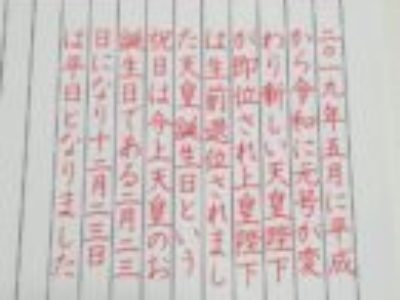 二〇一九年五月に平成
から令和に元号が変
わり新しい天皇陛下
が即位され上皇陛下
は生前退位されまし
た天皇誕生日という
祝日は今上天皇のお
誕生日である二月二三
日になり十二月二三日
は平日となりました